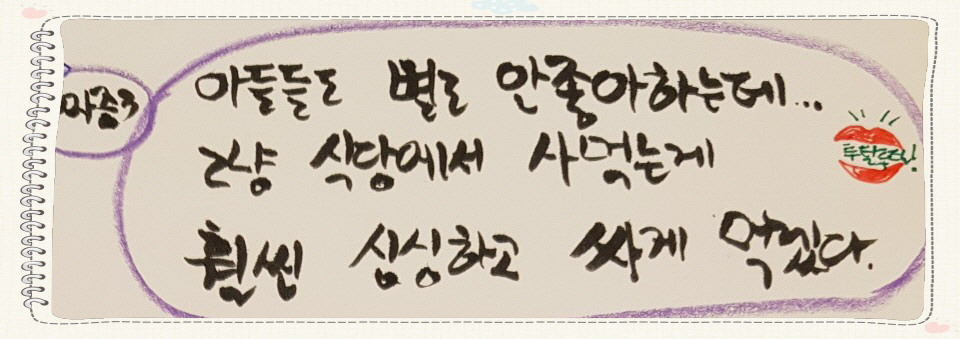 아들들도 별로 안좋아하는데...
그냥 식당에서 사먹는게
훨씬 싱싱하고 싸게 먹겠다.